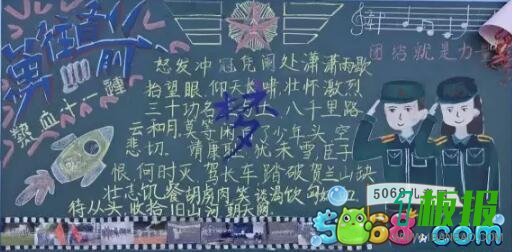 勇往直前
热血十一種
团结就是力量
怒发冲冠凭阑处潇潇雨歇
抬望眼仰天长啸壮怀激烈
三十功名尘与土八千里路
云和月.莫等闲白了少年头空
悲切.靖康耻.犹未雪臣子
恨.何时灭.驾长车踏破贺兰山缺
壮志饥餐胡虏肉笑谈渴饮匈奴血
待从头收拾旧山河朝天阙
梦
5068儿
板报
5068.com